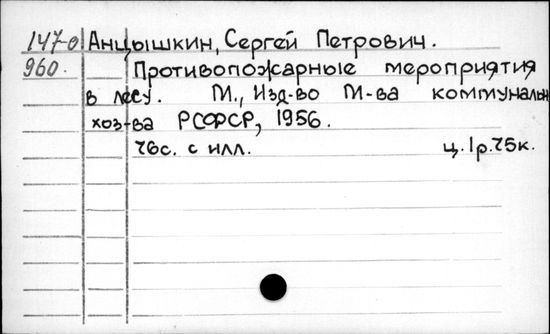 147-0 Анцышкин, Сергей Петрович.
960. Противопожарные мероприятия
в лесу. М., Изд-во М-ва коммунальн
хоз-ва РСФСР, 1956.
76с. с илл. ц. 1р. 75к.